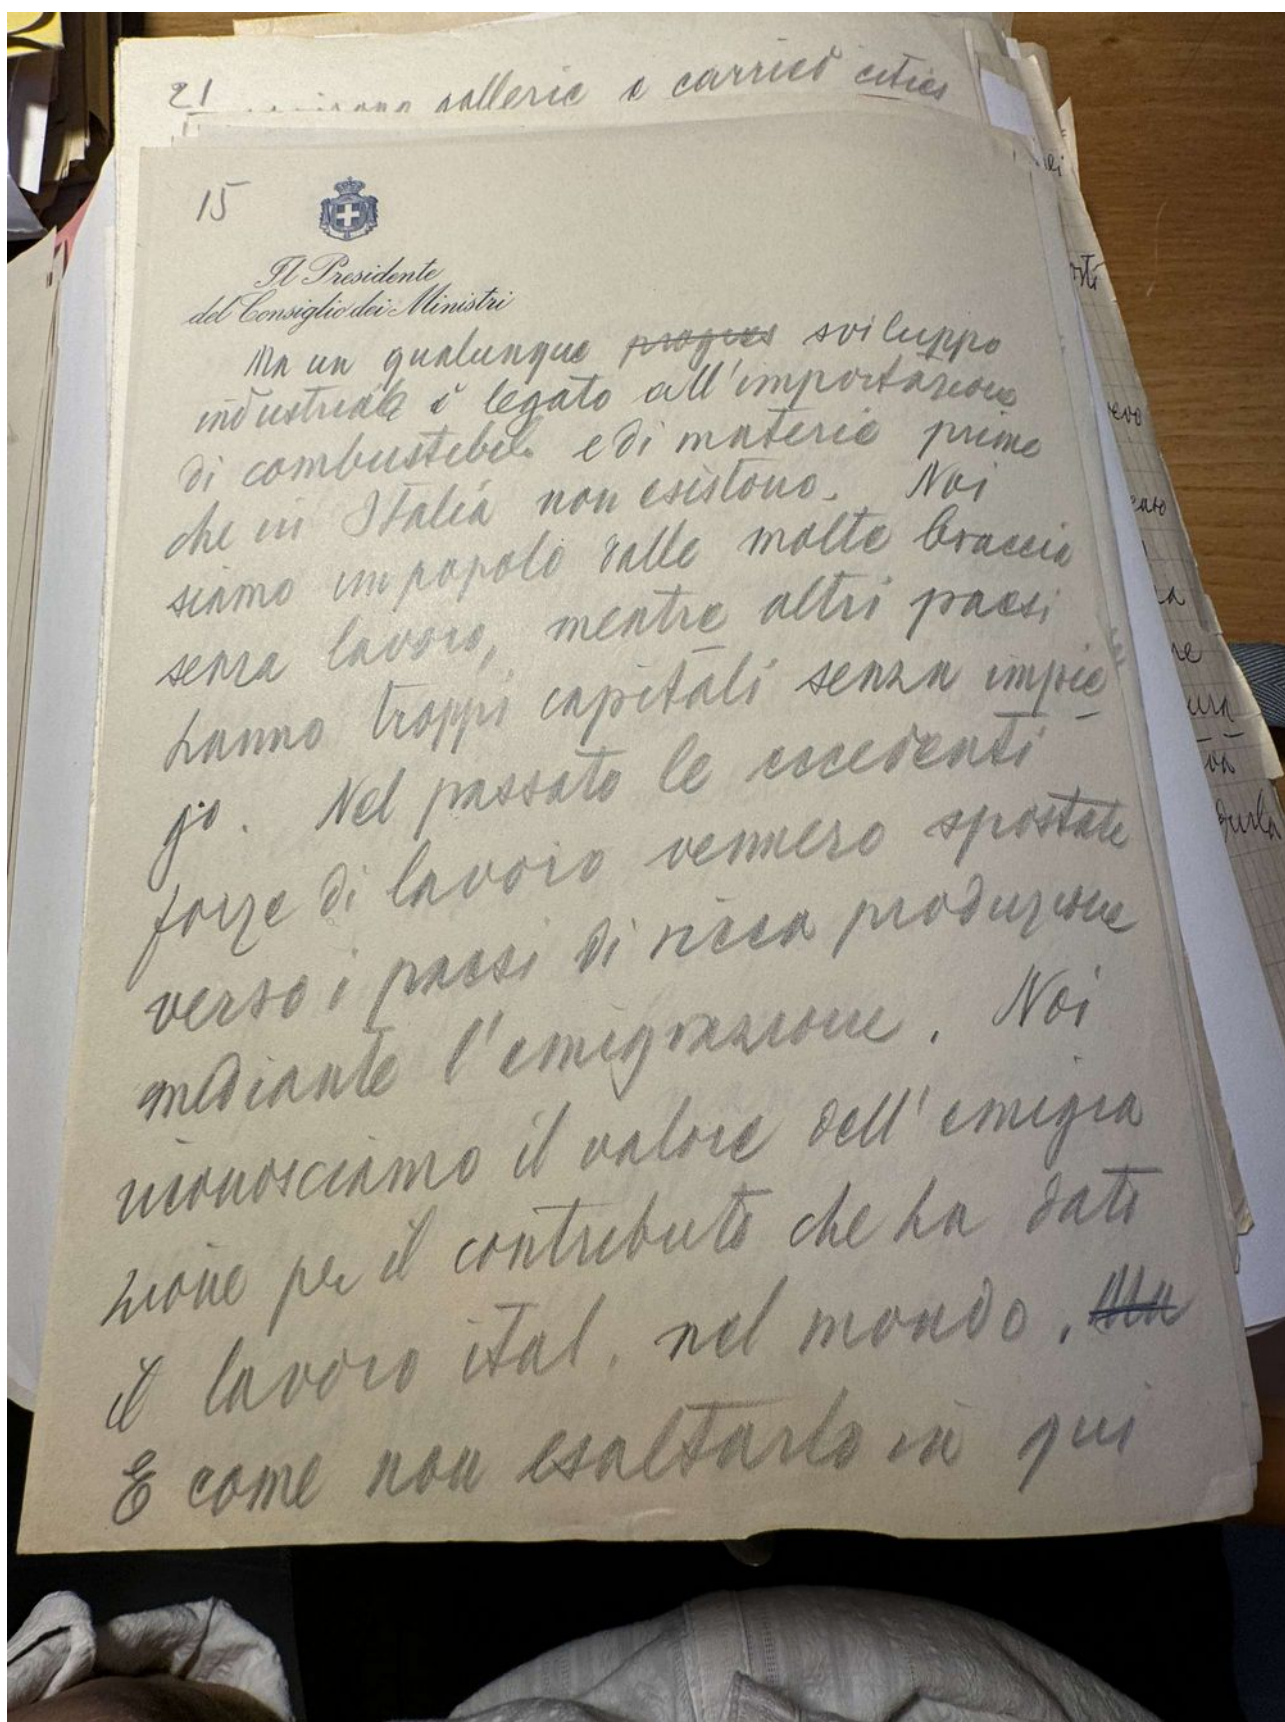 21
gallerie e carried cities
15
Il Presidente
del Consiglio dei Ministri
Ma un qualunque progres sviluppo
industriale è legato all'importazione
di combustibili e di materie prime
che in Italia non esistono. Noi
siamo un popolo dalle molte braccia
senza lavoro, mentre altri paesi
hanno troppi capitali senza impie
go. Nel passato le eccedenti
forze di lavoro vennero spostate
verso i paesi di ricca produzione
mediante l'emigrazione. Noi
riconosciamo il valore dell'emigra
zione per il contributo che ha dato
il lavoro ital. nel mondo. Ma
E come non esaltarlo in qui